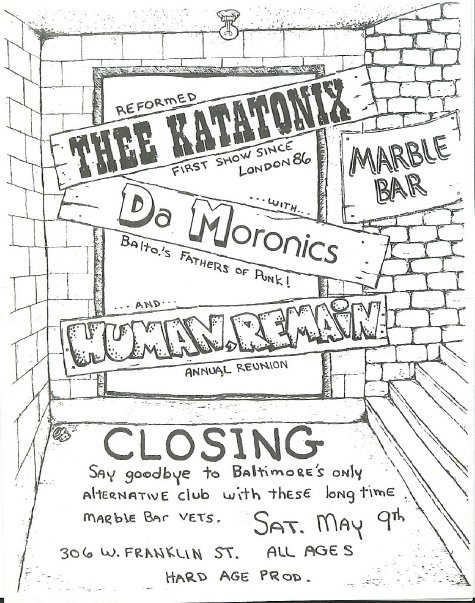 REFORMED
THEE KATATONIX
FIRST SHOW SINCE
LONDON 86
MARBLE
BAR
...WITH...
Da Moronics
BALTO.'S FATHERS OF PUNK!
...AND...
HUMAN, REMAIN
ANNUAL REUNION
CLOSING
Say goodbye to BALTIMORE'S only
ALTERNATIVE club with these long time
MARBLE BAR VETS.
SAT. MAY 9th
306 W. FRANKLIN ST. ALL AGES
HARD AGE PROD.